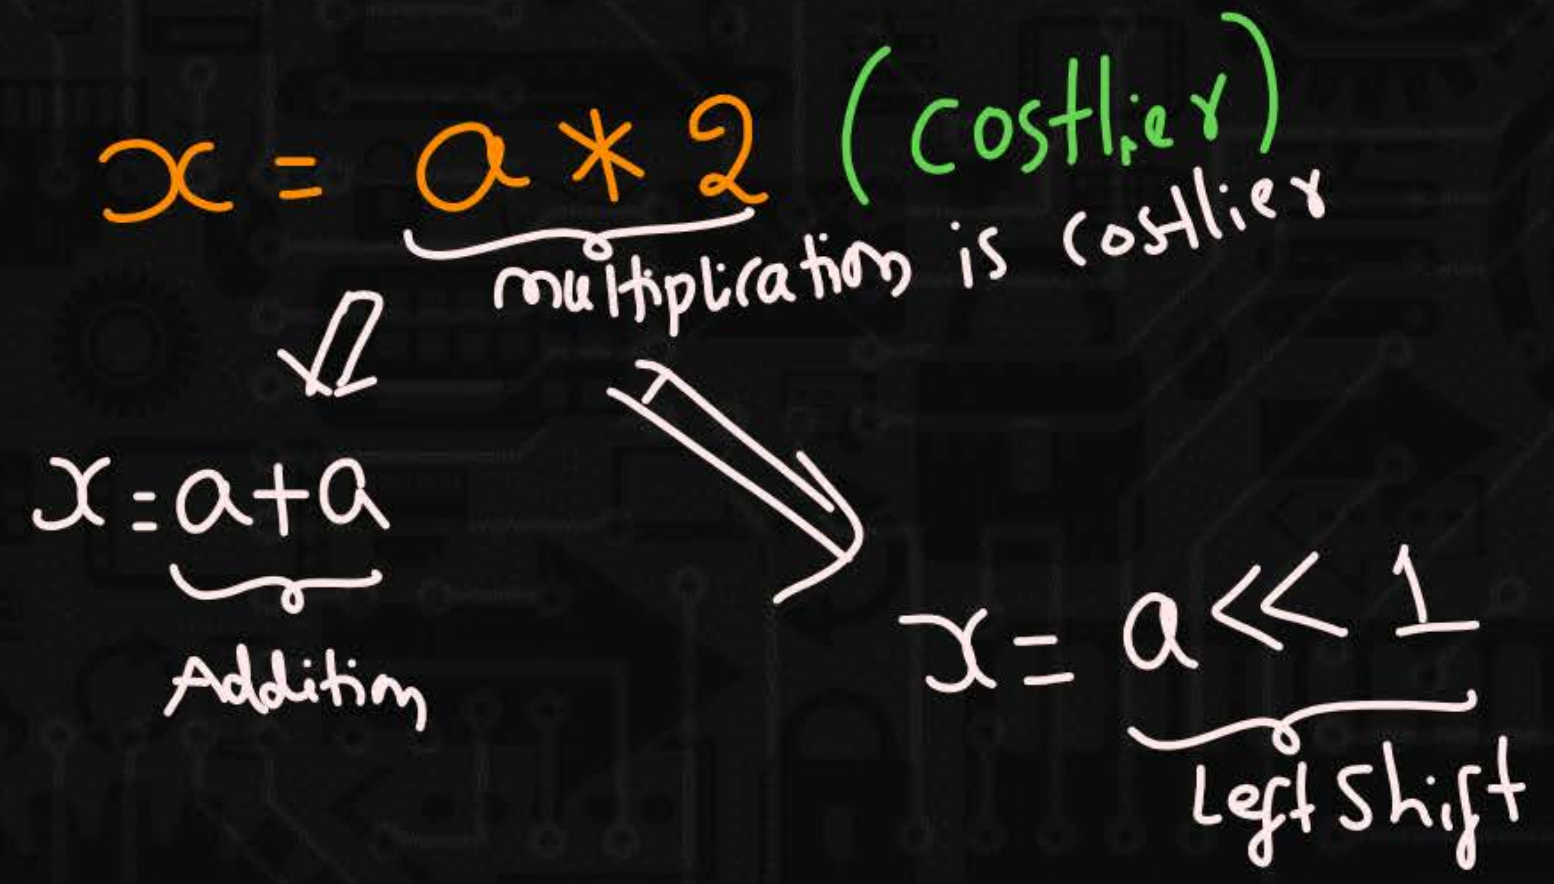 x = a * 2 (costlier)
multiplication is costlier
x = a + a
Addition
x = a << 1
Left Shift